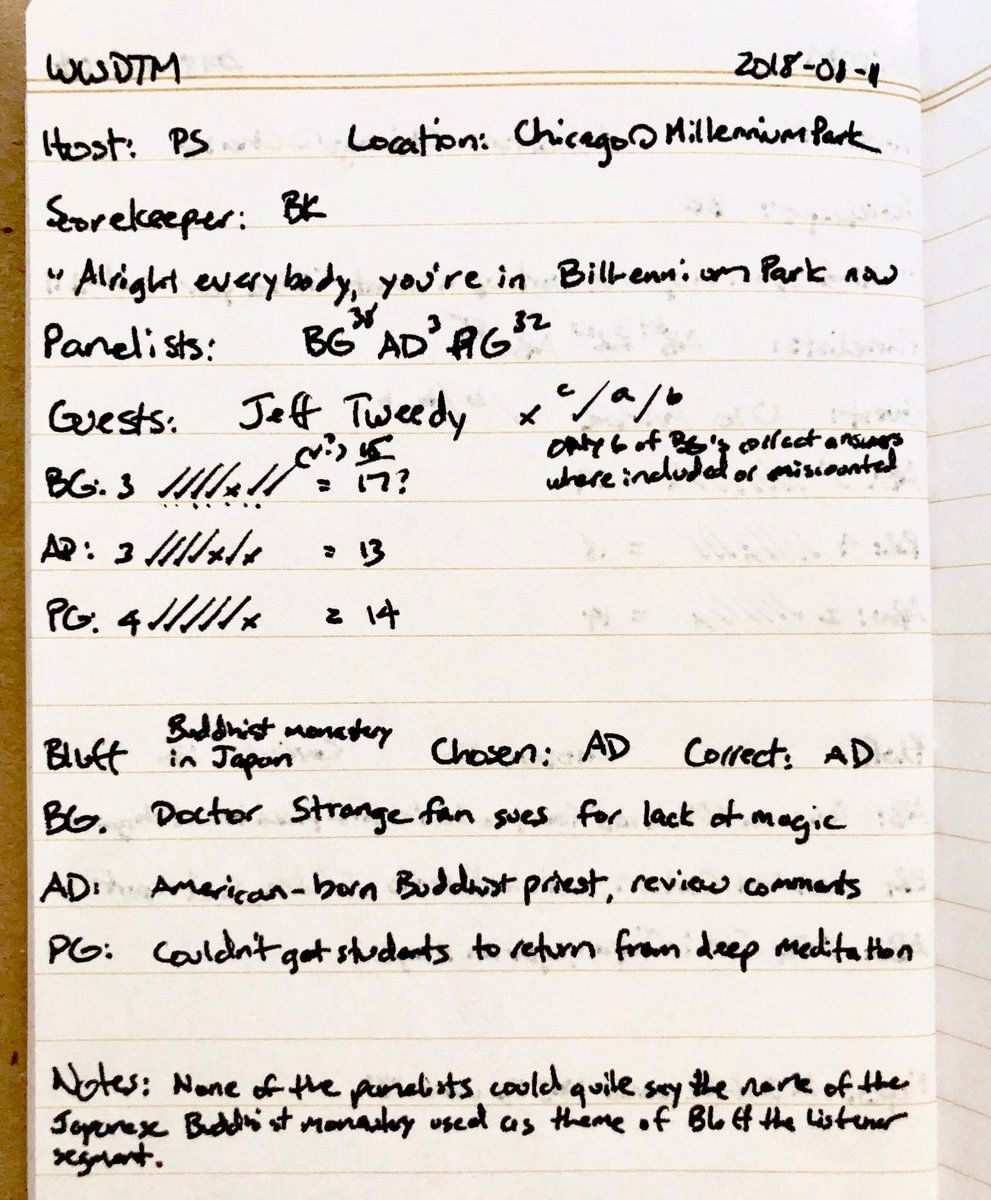 WWDTM 2018-08-11
Host: PS Location: Chicago @ Millennium Park
Scorekeeper: BK
"Alright everybody, you're in Billennium Park now
Panelists: BG AD³ PG³²
Guests: Jeff Tweedy × c/ a/ b
only 6 of BG's correct answers
where included or miscounted
(v?) 15
BG: 3 ✓✓✓✓×✓✓ = 17?
AD: 3 ✓✓✓✓×✓× = 13
PG: 4 ✓✓✓✓✓× = 14
Buddhist monastery
Bluff in Japan Chosen: AD Correct: AD
BG. Doctor Strange fan sues for lack of magic
AD: American-born Buddhist priest, review comments
PG: Couldn't get students to return from deep meditation
Notes: None of the panelists could quite say the name of the
Japanese Buddhist monastery used as theme of Bluff the Listener
segment.